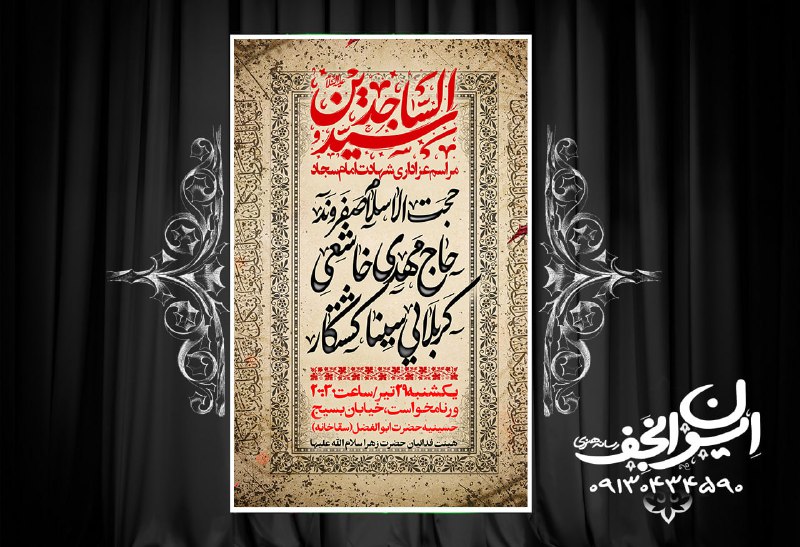 سید الساجدین علیه السلام
مراسم عزاداری شهادت امام سجاد
حجت الاسلام صفروند
حاج مهدی خاشعی
کربلائی سینا کشتکار
یکشنبه ۲۹ تیر / ساعت ۲۰:۳۰
ورنامخواست، خیابان بسیج
حسینیه حضرت ابوالفضل (سقاخانه)
هیئت فدائیان حضرت زهرا سلام الله علیها
ایوان نجف
۰۹۱۳۰۴۳۴۵۹۰